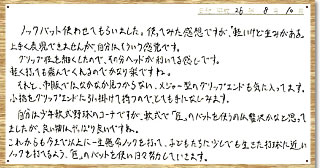 平成26年8月10日
ノックバット使わせてもらいました。使ってみた感想ですが、"軽いけど重みがある"
上手く表現できませんが、自分はそういう感覚です。
グリップ位を細くしたので、その分ヘッドが利いてる感じです。
軽く打っても飛んでくれるのでかなり楽ですね。
それと、市販ではなかなか見つからない、メジャー型のグリップエンドも気に入ってます。
小指をグリップエンドに引っ掛けて持つので、とても手になじみます。
自分は少年軟式野球のコーチですが、軟式で「匠」のバットを使うのは贅沢かなと思って
ましたが、良い物はやっぱり良いですね。
これからも今まで以上に一生懸命ノックを打って、子どもたちに少しでも生きた打球に近い
ノックを打てるよう、「匠」のバットを使い日々努力していきます。